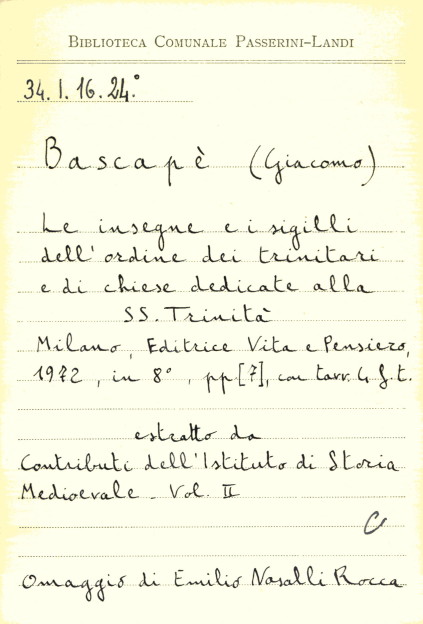 BIBLIOTECA COMUNALE PASSERINI-LANDI
34. I. 16. 24.°
Bascapè (Giacomo)
Le insegne e i sigilli
dell'ordine dei trinitari
e di chiese dedicate alla
SS. Trinità
Milano, Editrice Vita e Pensiero,
1972, in 8°, pp [7], con tavv. 4 f. t.
estratto da
Contributi dell'Istituto di Storia
Medioevale - Vol. II
Omaggio di Emilio Nasalli Rocca